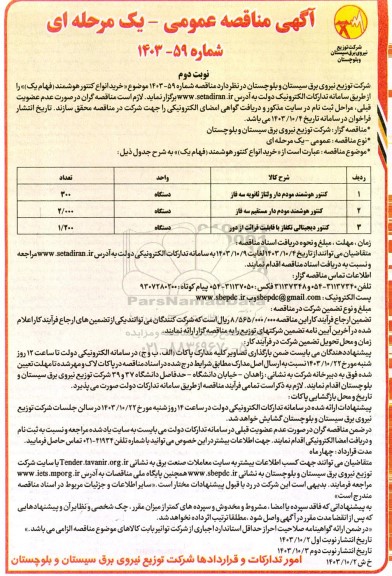 آگهی مناقصه عمومی - یک مرحله ای
شماره ۵۹- ۱۴۰۳
شرکت توزیع
نیروی برق سیستان
و بلوچستان
نوبت دوم
شرکت توزیع نیروی برق سیستان و بلوچستان در نظر دارد مناقصه شماره ۵۹-۱۴۰۳ موضوع «خرید انواع کنتور هوشمند (فهام یک)» را
از طریق سامانه تدارکات الکترونیک دولت به آدرس www.setadiran.ir برگزار نماید. لازم است مناقصه گران در صورت عدم عضویت
قبلی، مراحل ثبت نام در سایت مذکور و دریافت گواهی امضای الکترونیکی را جهت شرکت در مناقصه محقق سازند. تاریخ انتشار
فراخوان در سامانه تاریخ ۱۴۰۳/۱۰/۴ می باشد.
*مناقصه گزار: شرکت توزیع نیروی برق سیستان و بلوچستان
*نوع مناقصه: عمومی - یک مرحله ای
*موضوع مناقصه: عبارت است از «خرید انواع کنتور هوشمند (فهام یک)» به شرح جدول ذیل:
ردیف شرح کالا واحد تعداد
۱ کنتور هوشمند مودم دار ولتاژ ثانویه سه فاز دستگاه ۳۰۰
۲ کنتور هوشمند مودم دار مستقیم سه فاز دستگاه ۲/۰۰۰
۳ کنتور دیجیتالی تکفاز با قابلیت قرائت از دور دستگاه ۱/۲۰۰
زمان، مهلت، مبلغ و نحوه دریافت اسناد مناقصه:
متقاضیان می توانند از تاریخ ۱۴۰۳/۱۰/۴ لغایت ۱۴۰۳/۱۰/۹ به سامانه تدارکات الکترونیکی دولت به آدرس www.setadiran.ir مراجعه
و نسبت به دریافت اسناد مناقصه اقدام نمایند.
اطلاعات تماس مناقصه گزار:
تلفن: ۳۱۱۳۷۳۴۰-۰۵۴ و ۳۱۱۳۷۳۴۸ فکس: ۳۱۱۳۷۰۵۰-۰۵۴ پیام کوتاه: ۹۳۰۷۲۸۰۲۰۰
پست الکترونیک: sbepdc@gmail.com وب www.sbepdc.ir
مبلغ و نوع تضمین شرکت در مناقصه:
تضمین ارجاع فرآیند کار این مناقصه ۸/۵۶۵/۰۰۰/۰۰۰ ریال است که شرکت کنندگان می توانند یکی از تضمین های ارجاع فرآیند کار اعلام
شده در آخرین آیین نامه تضمین شرکتهای توزیع را به مناقصه گزار ارائه نمایند.
زمان و محل تحویل تضمین شرکت در فرآیند کار:
پیشنهاددهندگان می بایست ضمن بارگذاری تصاویر کلیه مدارک پاکات (الف، ب و ج)، در سامانه الکترونیکی دولت تا ساعت ۱۲ روز
شنبه مورخ ۱۴۰۳/۱۰/۲۲ نسبت به ارسال اصل مدارک مطابق شرایط درج شده در اسناد مناقصه در پاکات لاک و مهر شده تا مهلت تعیین
شده فوق به دبیرخانه شرکت به نشانی: زاهدان - خیابان دانشگاه - حدفاصل دانشگاه ۳۷ و ۳۹ شرکت توزیع نیروی برق سیستان و
بلوچستان اقدام نمایند. لازم به ذکر است تمامی فرآیند مناقصه از طریق سامانه تدارکات دولت صورت می پذیرد.
تاریخ و محل بازگشایی پاکات:
پیشنهادات ارائه شده در سامانه تدارکات الکترونیکی دولت در ساعت ۱۴ روز شنبه مورخ ۱۴۰۳/۱۰/۲۲ در سالن جلسات شرکت توزیع
نیروی برق سیستان و بلوچستان گشایش خواهد شد.
در ضمن مناقصه گران در صورت عدم عضویت قبلی در سامانه تدارکات دولت می بایست به سایت یاد شده مراجعه و نسبت به ثبت نام
و دریافت امضا الکترونیکی اقدام نمایند. جهت اطلاعات بیشتر در این خصوص می توانید با شماره تلفن ۴۱۹۳۴-۰۲۱ تماس حاصل فرمایید.
مدت قرارداد: چهار ماه
متقاضیان می توانند جهت کسب اطلاعات بیشتر به سایت معاملات صنعت برق به نشانی Tender.tavanir.org.ir یا سایت شرکت
توزیع نیروی برق سیستان و بلوچستان به نشانی www.sbepdc.ir همچنین پایگاه ملی مناقصات به آدرس www.iets.mporg.ir
مراجعه فرمایند. بدیهی است این شرکت در رد یا قبول پیشنهادات مختار است. «سایر اطلاعات و جزئیات مربوط در اسناد مناقصه
مندرج است»
به پیشنهاداتی که فاقد سپرده یا امضا، مشروط و مخدوش و سپرده های کمتر از میزان مقرر، چک شخصی و نظایر آن و پیشنهادهایی
که پس از انقضا مدت مقرر در آگهی واصل شود، مطلقا ترتیب اثر داده نخواهد شد.
«در ضمن ارائه گواهینامه صلاحیت احراز حداقل استاندارد اجباری از شرکت توانیر بابت کالاهای موضوع مناقصه الزامی می باشد.»
تاریخ انتشار نوبت اول ۱۴۰۳/۱۰/۲
تاریخ انتشار نوبت دوم ۱۴۰۳/۱۰/۳
خ ش ۱۴۰۳/۱۰/۲
امور تدارکات و قراردادها شرکت توزیع نیروی برق سیستان و بلوچستان